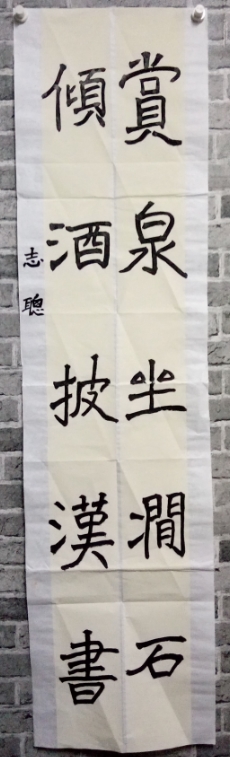 賞泉坐澗石
傾酒披漢書
志聰